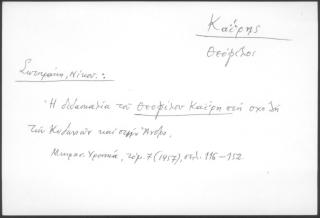 Καΐρης
Θεόφιλος
Σωτηράκη, Νίκου:
Ἡ διδασκαλία τοῦ Θεοφίλου Καΐρη στή σχολή
τῶν Κυδωνιῶν καί στήν Ἄνδρο.
Μικρασ. Χρονικά, τόμ. 7 (1957), σελ. 116-152